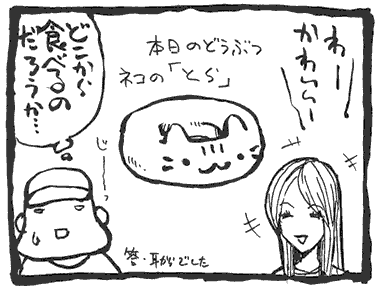 わー
かわいいー
本日のどうぶつ
ネコの「とら」
どこから
食べるの
だろうか…
じーーっ
答・耳からでした